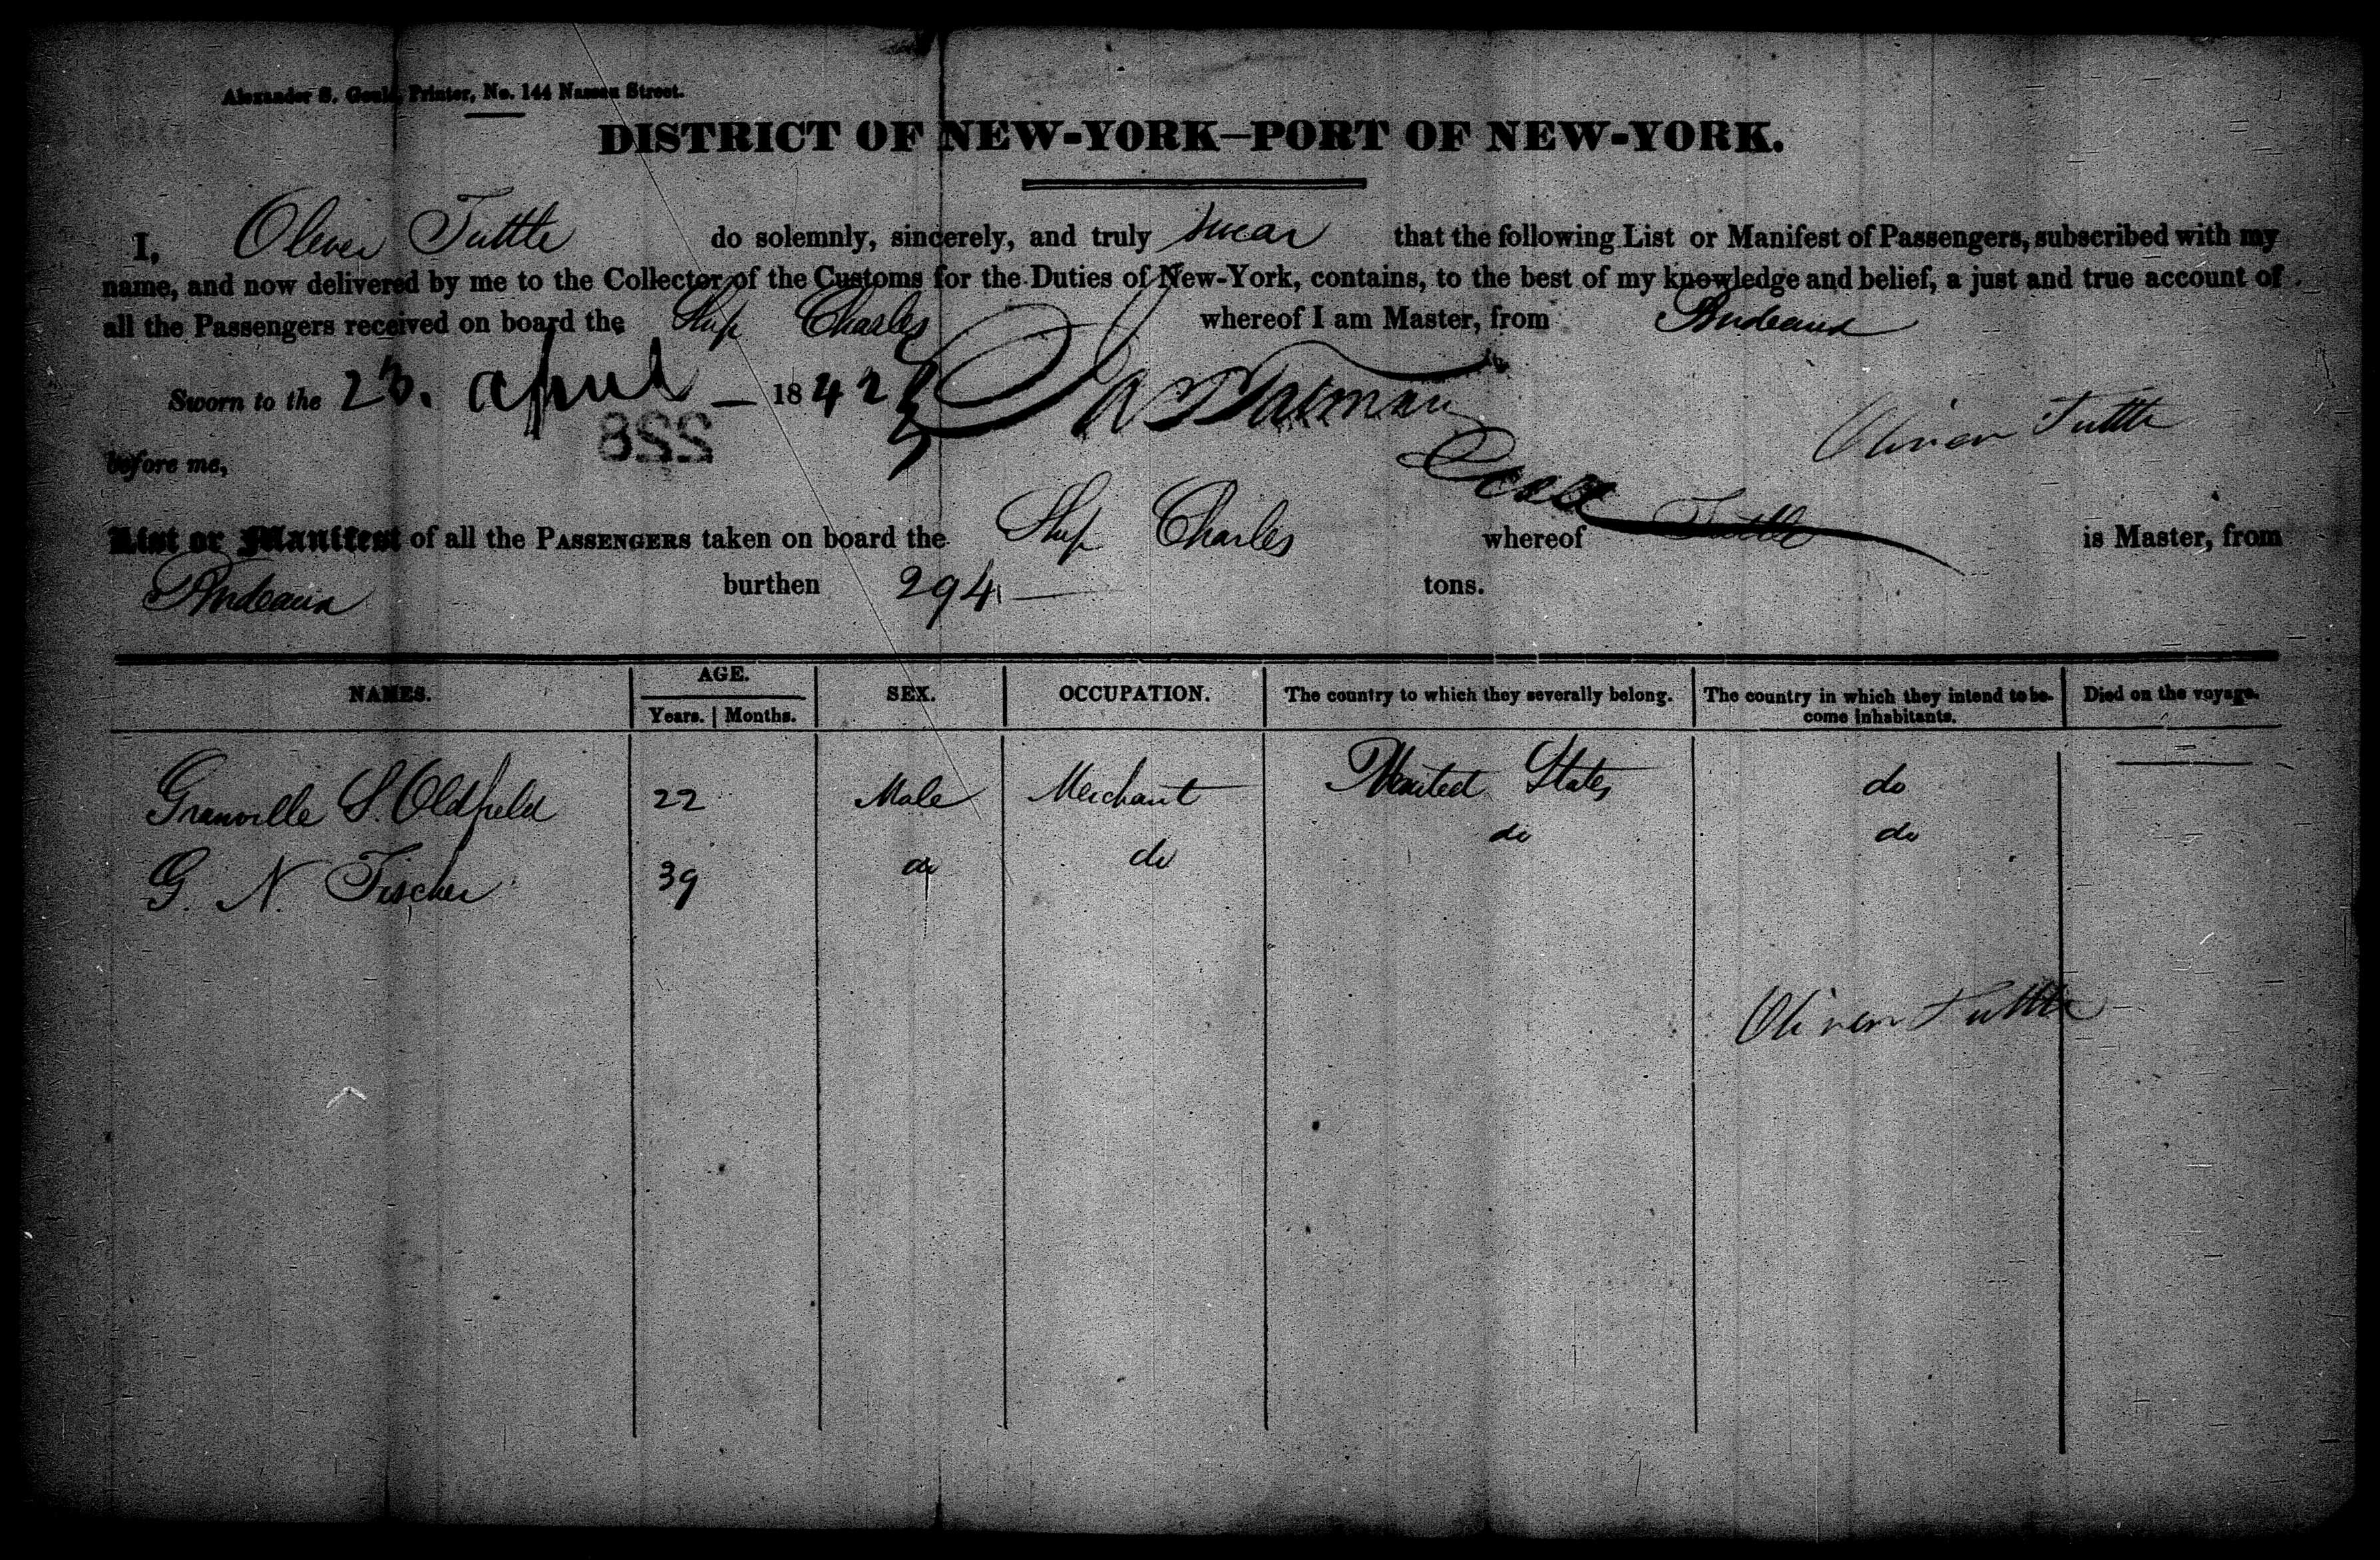 Alexander S. Gould, Printer, No. 144 Nassau Street.
DISTRICT OF NEW-YORK—PORT OF NEW-YORK.
I, Oliver Tuttle do solemnly, sincerely, and truly swear that the following List or Manifest of Passengers, subscribed with my
name, and now delivered by me to the Collector of the Customs for the Duties of New-York, contains, to the best of my knowledge and belief, a just and true account of
all the Passengers received on board the Ship Charles whereof I am Master, from Bordeaux
Sworn to the 23. april 1842
Oliver Tuttle
228
before me,
List or Manifest of all the PASSENGERS taken on board the Ship Charles whereof Tuttle is Master, from
Bordeaux burthen 294 tons.
NAMES. AGE. Years. Months. SEX. OCCUPATION. The country to which they severally belong. The country in which they intend to become inhabitants. Died on the voyage.
Granville S. Oldfield 22 Male Merchant United States do
G. N. Fischer 39 do do do do
Oliver Tuttle